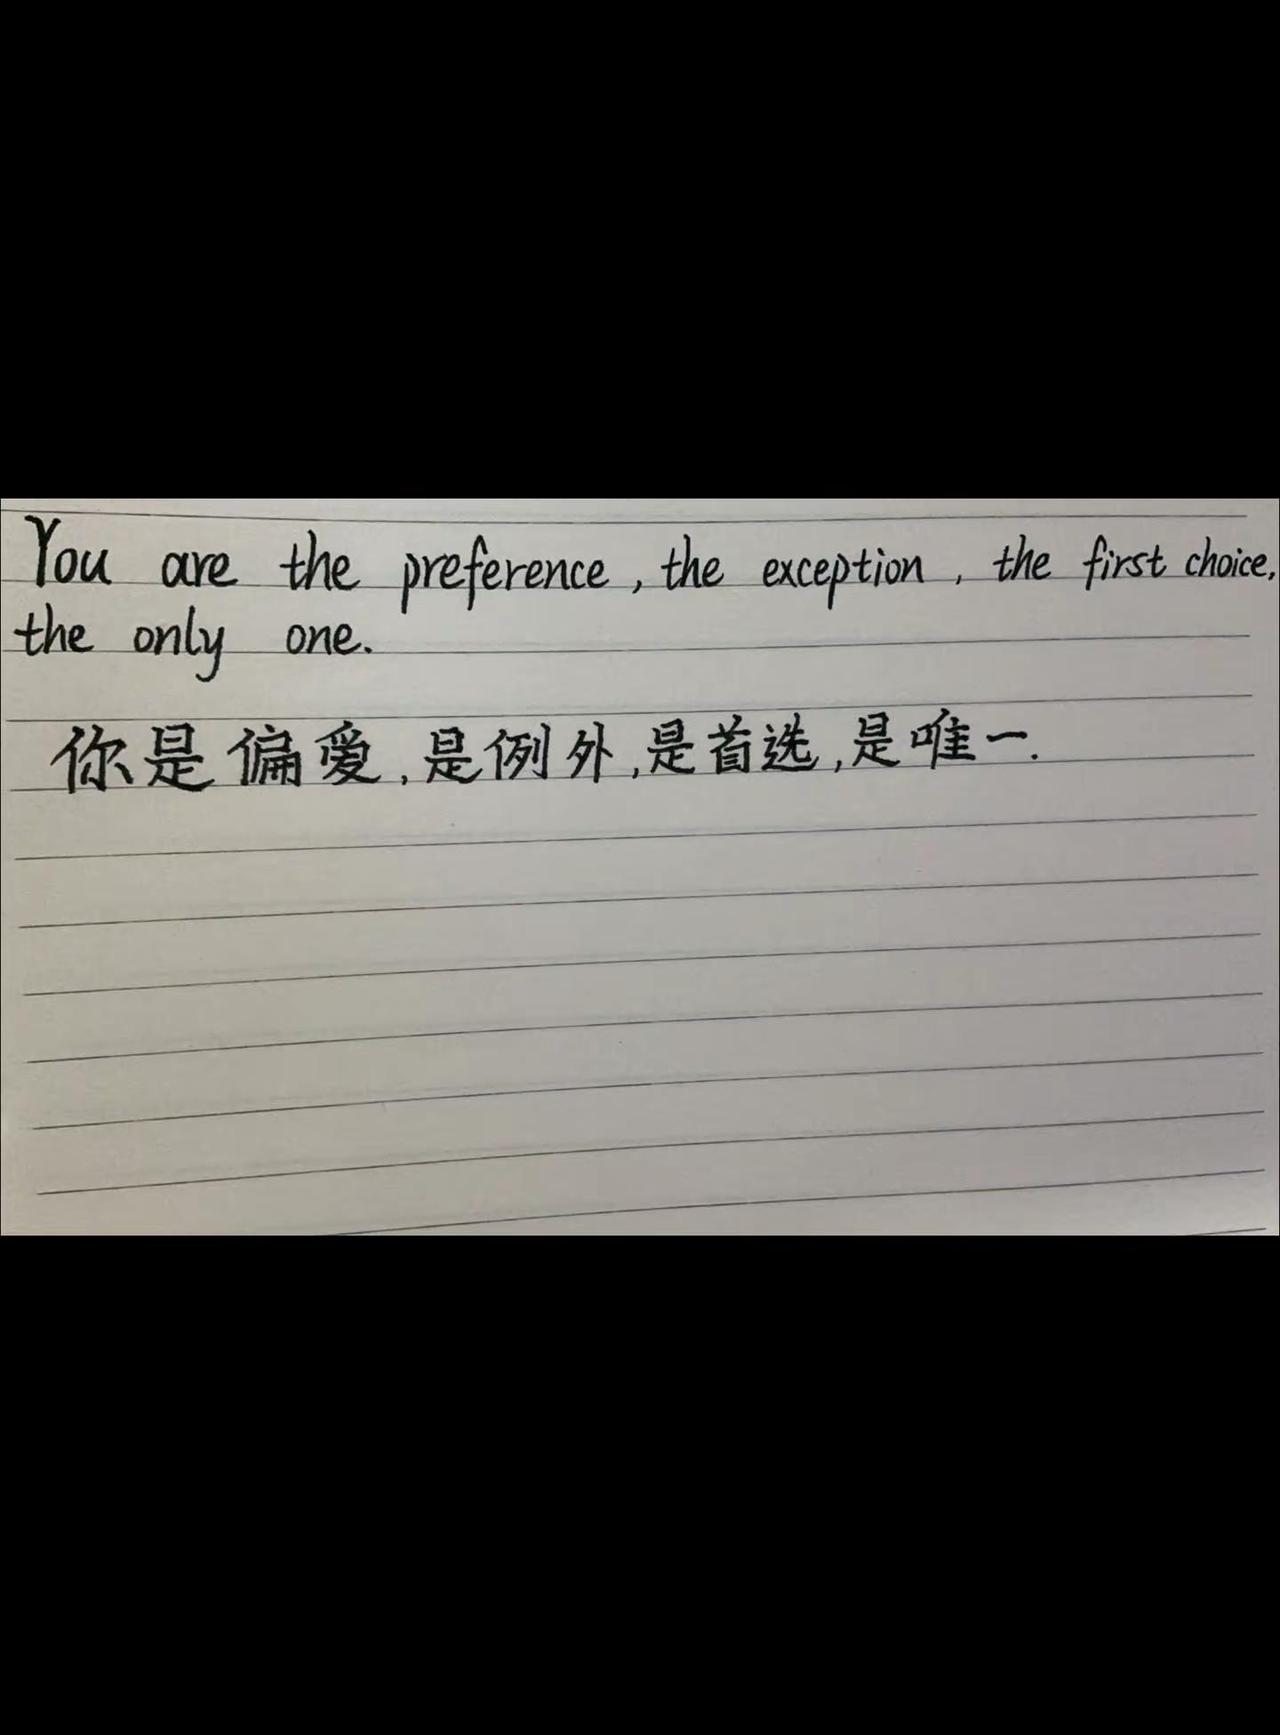 You are the preference, the exception, the first choice,
the only one.
你是偏爱,是例外,是首选,是唯一.